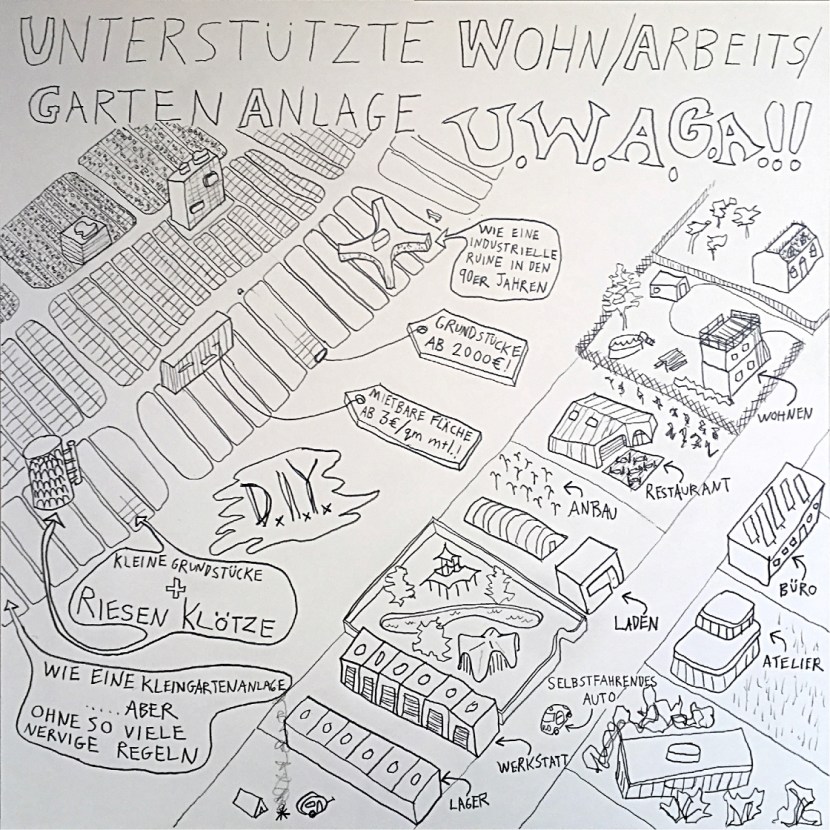 UNTERSTÜTZTE WOHN/ARBEITS/
GARTEN ANLAGE U.W.A.G.A.!!!
WIE EINE
INDUSTRIELLE
RUINE IN DEN
90ER JAHREN
GRUNDSTÜCKE
AB 2000€!
MIETBARE FLÄCHE
AB 3€/qm mtl.!
WOHNEN
RESTAURANT
ANBAU
D.I.Y.
BÜRO
KLEINE GRUNDSTÜCKE
+
RIESEN KLÖTZE
LADEN
ATELIER
WIE EINE KLEINGARTENANLAGE
.....ABER
OHNE SO VIELE
NERVIGE REGELN
SELBSTFAHRENDES
AUTO
WERKSTATT
LAGER